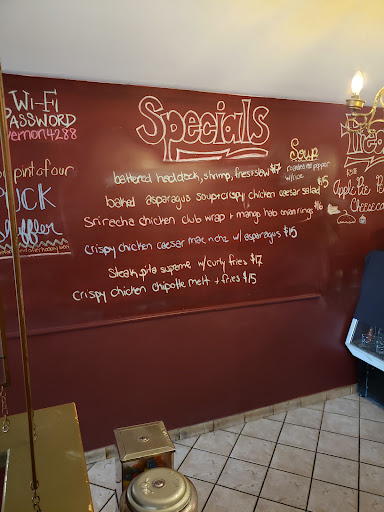 Wi-Fi
PASSWORD
vernon14288
pint of our
PUCK
Specials
battered haddock, shrimp, fries + slaw $17
baked asparagus soup + crispy chicken caesar salad $15
Sriracha chicken club wrap + mango hab onion rings $16
crispy chicken caesar mac n che w/ asparagus $15
Steak pita supreme w/ curly fries $17
crispy chicken chipotle melt + fries $15
Soup
roasted red pepper
w/ rice
Apple Pie
Cheeseca